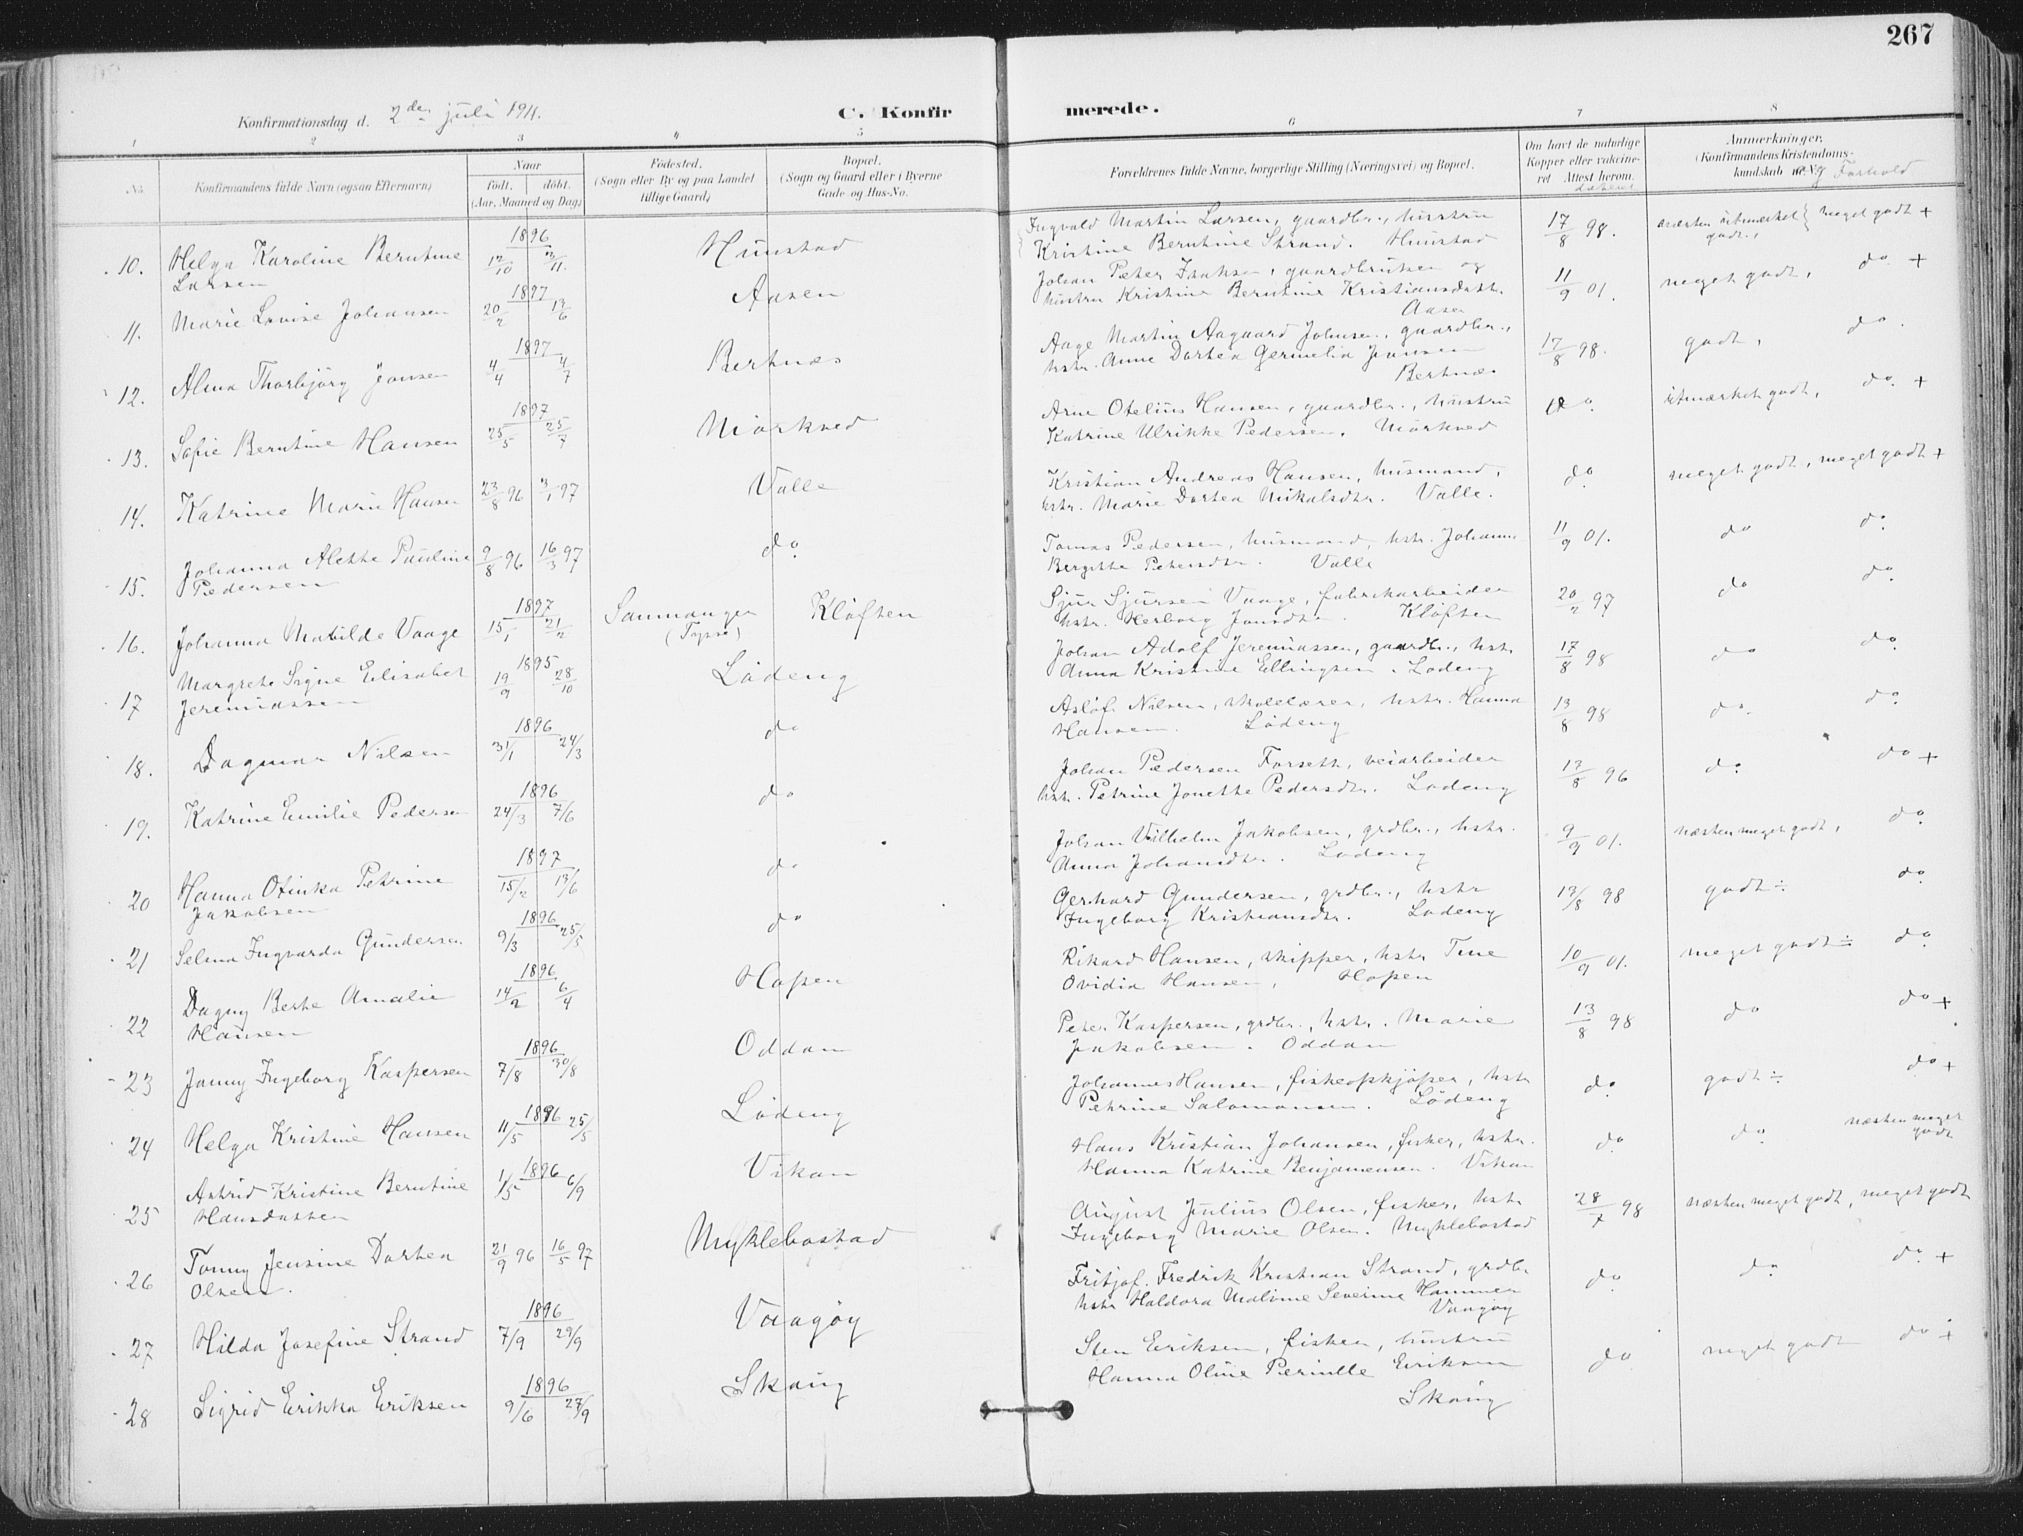 267
Konfirmationsdag d. 2den juli 1911.
C. Konfirmerede.
1 2 3 4 5 6 7 8
No.
Konfirmandens fulde Navn (ogsaa Efternavn)
Naar
født. døbt.
(Aar, Maaned og Dag)
Fødested.
(Sogn eller By og paa Landet
tillige Gaard)
Bopæl.
(Sogn og Gaard eller i Byerne
Gade og Hus-No.
Forældrenes fulde Navne, borgerlige Stilling (Næringsvei) og Bopæl.
Om havt de naturlige
Kopper eller vakcine-
ret Attest herom.
dateret
Anmerkninger.
(Konfirmandens Kristendoms-
kundskab og Forhold
10. Helga Karoline Berntine
Larsen
1896 12/10 3/11
Hunstad
Ingvald Martin Larsen, gaardbr., hustru
Kristine Berntine Strand. Hunstad
17/8 98.
næsten utmerket
godt,
meget godt +
11. Marie Lovise Johansen
1897 20/2 13/6
Aasen
Johan Peter Isaksen, gaardbruker og
hustru Kristine Berntine Kristiansdatter
Aasen
11/9 01.
meget godt, do. +
12. Alma Thorbjørg Jensen
1897 4/4 4/7
Bertnæs
Aage Martin Aagaard Johnsen, gaardbr.,
hstr. Anne Dortea Germelia Jensen
Bertnæs
17/8 98.
godt, do.
13. Sofie Berntine Hansen
1897 25/5 25/7
Mørkved
Arne Otelius Hansen, gaardbr., hustru
Katrine Ulrikke Pedersen. Mørkved
do.
utmærket godt, do. +
14. Katrine Marie Hansen
23/8 96 3/1 97
Valle
Kristian Andreas Hansen, husmand,
hstr. Marie Dortea Mikalsdtr. Valle.
do
meget godt, meget godt +
15. Johanna Alette Pauline
Pedersen
9/8 96 16/3 97
do.
Tomas Pedersen, husmand, hstr. Johanna
Bergitte Petersdtr. Valle
11/9 01.
do do.
16. Johanna Matilde Vaage
1897 15/1 21/2
Sammanger
(Tysse)
Kløften
Sjur Sjursen Vaage, fabrikarbeider
hstr. Herborg Jonsdtr. Kløften
20/2 97
do do.
17 Margrete Signe Elisabet
Jeremiassen
1895 19/9 28/10
Lødeng
Johan Adolf Jeremiassen, gaardbr., hstr.
Anna Kristine Ellingsen. Lødeng
17/8 98
do do.
18. Dagmar Nilsen
1896 31/1 24/3
do
Asløf Nilsen, skolelærer, hstr. Hanna
Hansen. Lødeng
13/8 98
do. do.
19. Katrine Emilie Pedersen
1896 24/3 7/6
do
Johan Pedersen Forseth, veiarbeider
hstr. Petrine Jonette Pedersdtr. Lødeng
17/8 96
do. do +
20 Hanna Otinka Petrine
Jakobsen
1897 15/2 13/6
do
Johan Vilhelm Jakobsen, grdbr., hstr.
Anna Johansdtr. Lødeng
9/9 01.
næsten meget godt, do.
21 Selma Ingvarda Gundersen
1896 9/3 25/5
do
Gerhard Gundersen, grdbr., hstr
Ingeborg Kristiansdtr. Lødeng
13/8 98
godt ÷ do.
22 Dagny Berte Amalie
Hansen
1896 14/2 6/4
Hopen
Rikard Hansen, skipper, hstr Tine
Ovidia Hansen, Hopen
10/9 01.
meget godt ÷ do.
23 Janny Ingeborg Kaspersen
1896 7/8 30/8
Oddan
Peter Kaspersen, grdbr., hstr. Marie
Jakobsen. Oddan
13/8 98
do do +
24 Helga Kristine Hansen
1896 11/5 25/5
Lødeng
Johannes Hansen, fiskeopkjøper, hstr
Petrine Salomonsen. Lødeng
do.
godt ÷ do +
25 Astrid Kristine Berntine
Hansdatter
1896 1/5 6/9
Vikan
Hans Kristian Johansen, fisker, hstr.
Hanna Katrine Benjaminsen. Vikan
do.
do. næsten meget
godt
26 Tonny Jensine Dortea
Olsen.
21/9 96 16/5 97
Myklebostad
August Julius Olsen, fisker, hstr
Ingeborg Marie Olsen. Myklebostad
28/7 98
næsten meget godt, meget godt
27 Hilda Josefine Strand
1896 7/9 29/9
Vaagøy
Fritjof Fredrik Kristian Strand, grdbr
hstr Haldora Maline Severine Hammer
Vaagøy
do.
do. do. +
28 Sigrid Erikka Eriksen
1896 9/6 27/9
Skaug
Sten Eriksen, fisker, hustru
Hanna Oline Pernille Eriksen
Skaug
do
meget godt do +